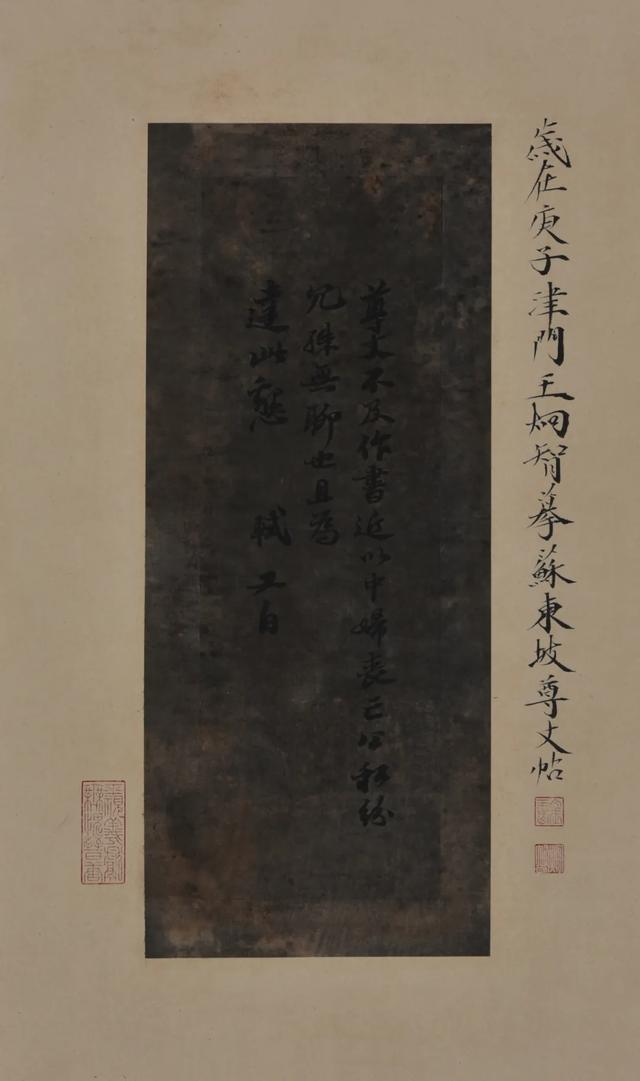 歲在庚子津門王炯智摹蘇東坡尊丈帖
尊丈不及作書近以中婦喪亡公私紛
冗殊無聊也且為
達此懇　軾又白